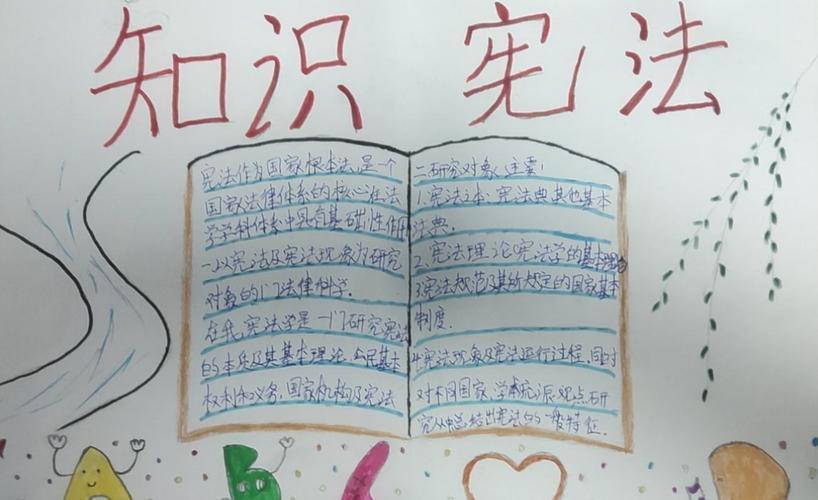 知识 宪法
宪法作为国家根本法,是一个
国家法律体系的核心在法
学学科体系中具有基础性作用
一以宪法及宪法现象为研究
对象的门法律科学.
在我,宪法学是一门研究宪法
的本质及其基本理论、公民基本
权利和义务,国家机构及宪法
二研究对象,主要:
1.宪法文本、宪法典其他基本
法典.
2.宪法理论宪法学的基本理论
3宪法规范及其所规定的国家基本
制度.
4.宪法现象及宪法运行过程,同时
对不同国家,学术流派观点研
究从中总结出宪法的一般特征.